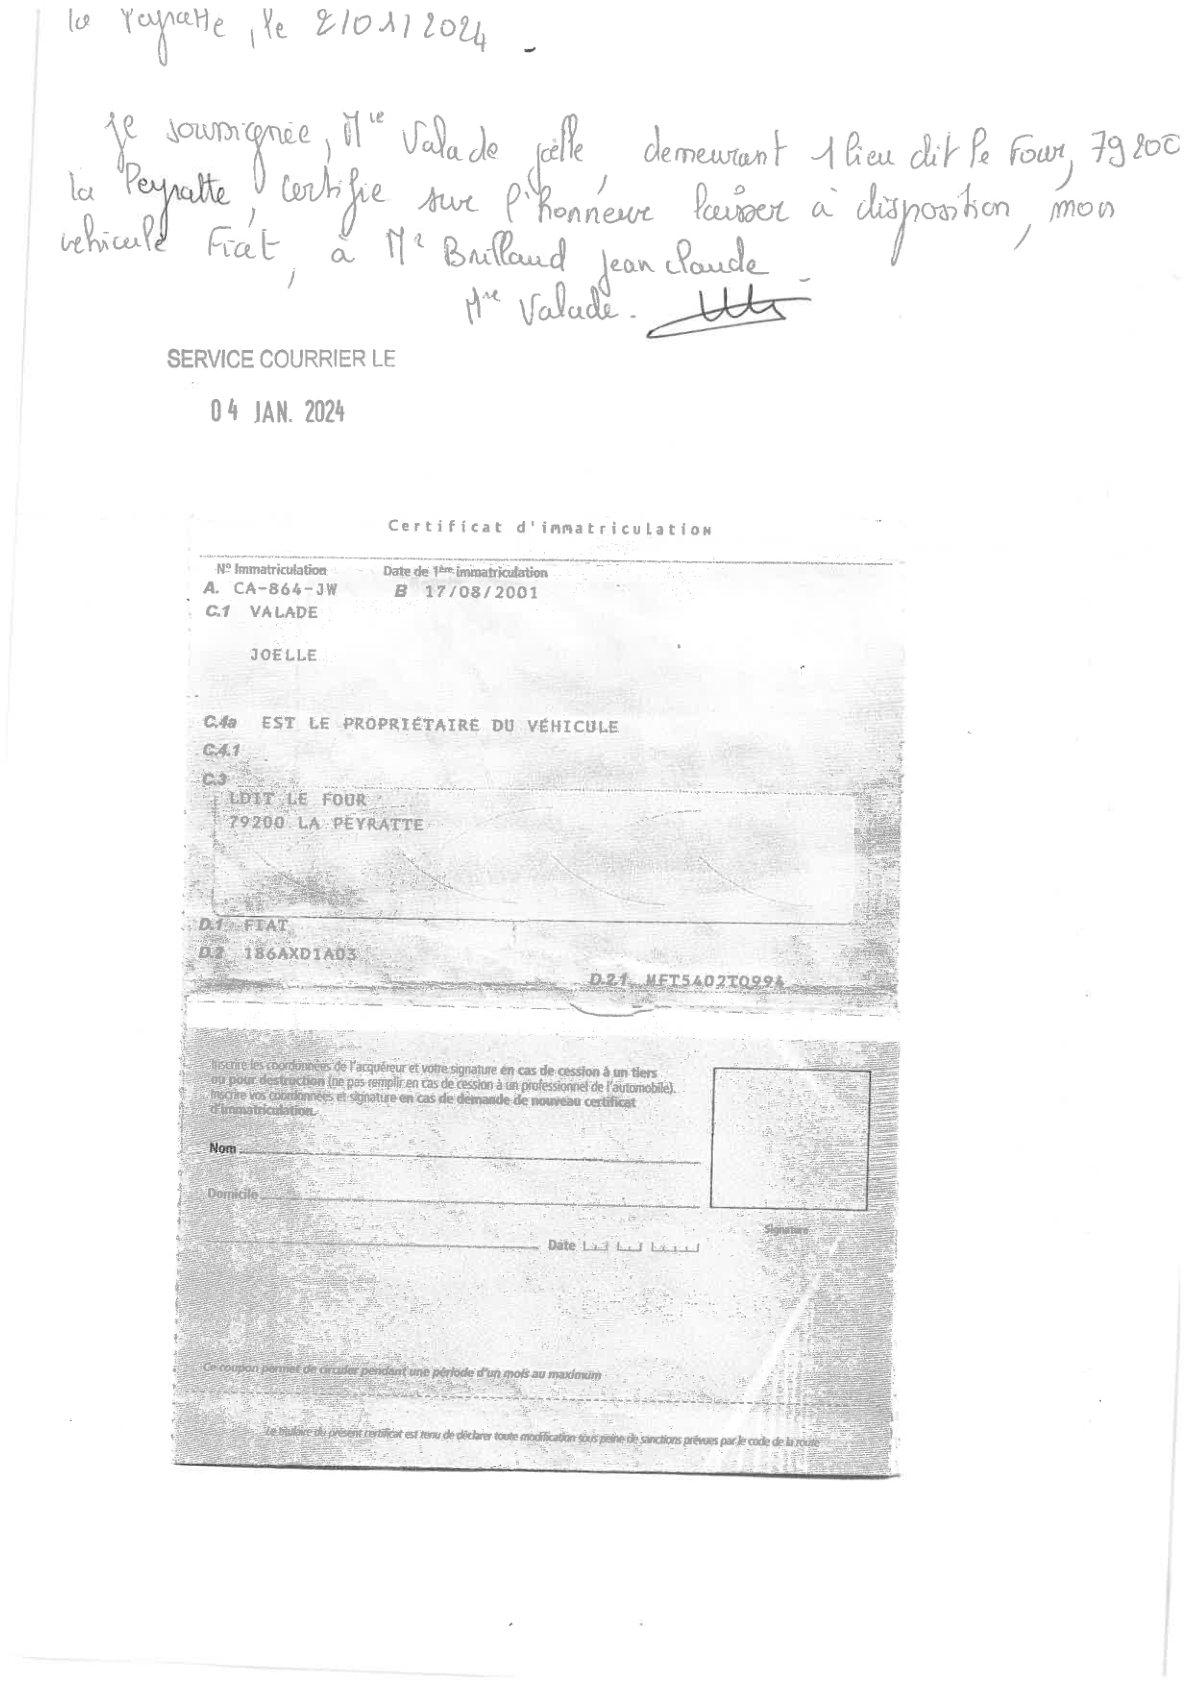 la Peyratte, le 2/01/2024
je soussignée, Mle Valade joëlle, demeurant 1 lieu dit le Four, 79200
la Peyratte, certifie sur l'honneur laisser à disposition, mon
vehicule Fiat, à Mr Brillaud jean claude
Mme Valade.
SERVICE COURRIER LE
04 JAN. 2024
Certificat d'immatriculation
N° Immatriculation Date de 1ère immatriculation
A. CA-864-JW B 17/08/2001
C.1 VALADE
JOELLE
C.4a EST LE PROPRIÉTAIRE DU VÉHICULE
C.4.1
C.3
LDIT LE FOUR
79200 LA PEYRATTE
D.1 FIAT
D.2 186AXD1A03
D.2.1 MFT5402T0994
Inscrire les coordonnées de l'acquéreur et votre signature en cas de cession à un tiers
ou pour destruction (ne pas remplir en cas de cession à un professionnel de l'automobile).
Inscrire vos coordonnées et signature en cas de demande de nouveau certificat
d'immatriculation.
Nom
Domicile
Signature
Date
Ce coupon permet de circuler pendant une période d'un mois au maximum
Le titulaire du présent certificat est tenu de déclarer toute modification sous peine de sanctions prévues par le code de la route